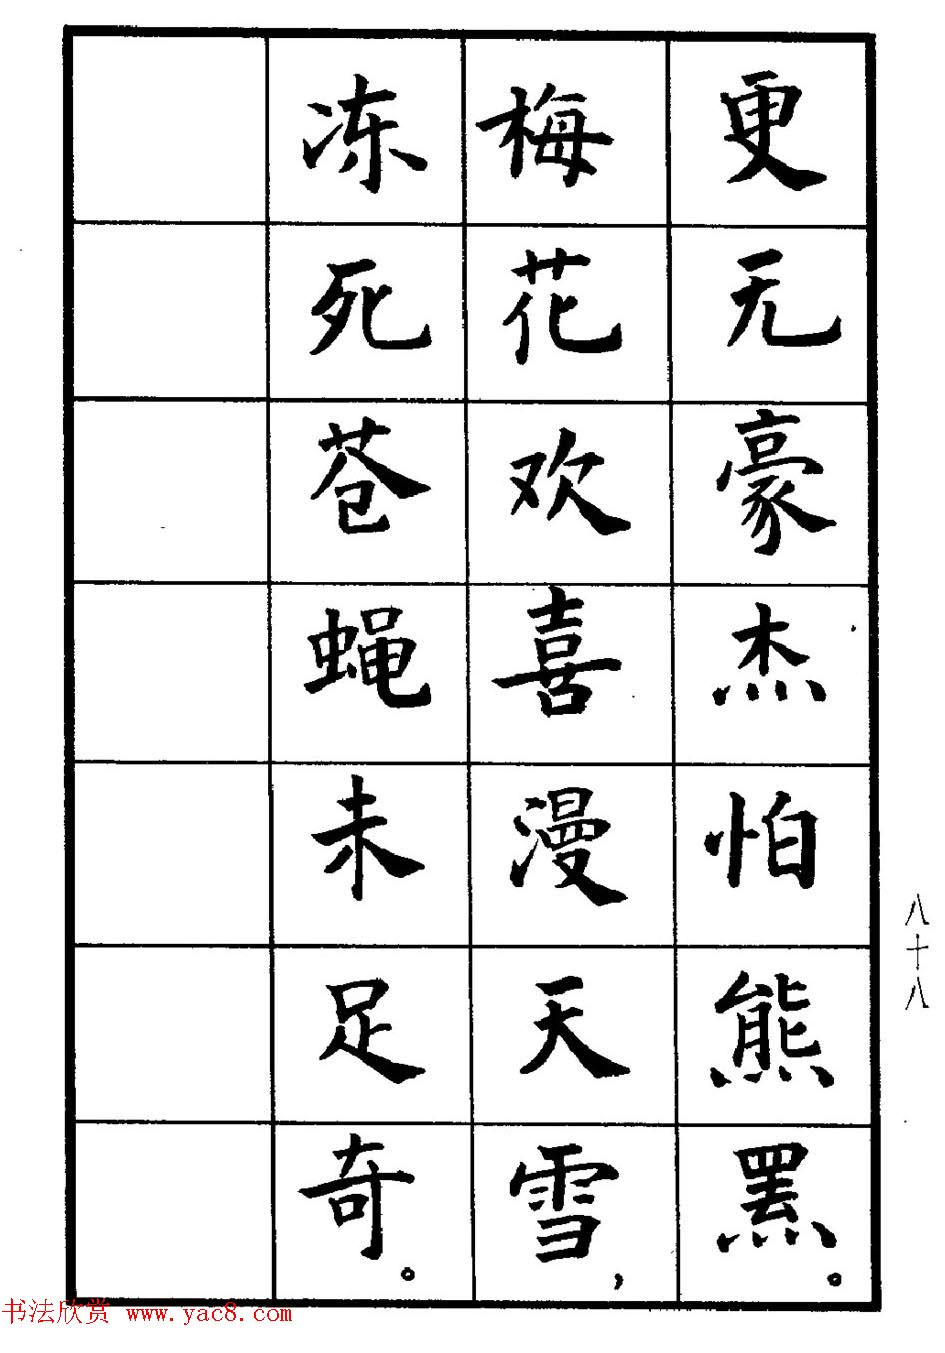 更无豪杰怕熊罴。
梅花欢喜漫天雪，
冻死苍蝇未足奇。
八十八
书法欣赏 www.yac8.com